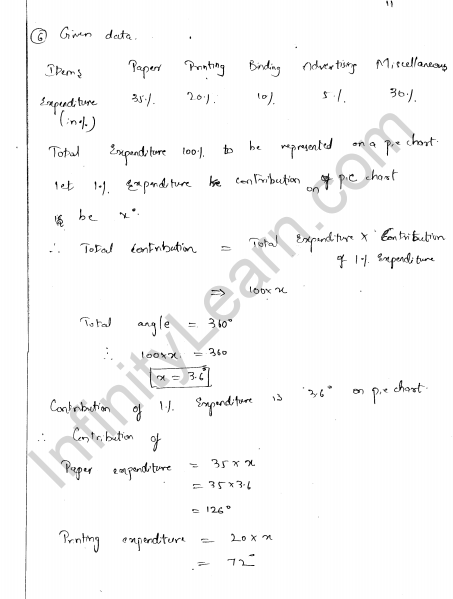 11
6 Given data.
Items Paper Printing Binding Advertising Miscellaneous
Expenditure (in %) 35% 20% 10% 5% 30%
Total Expenditure 100% to be represented on a pie chart.
let 1% Expenditure contribution on pie chart
be x°
∴ Total contribution = Total Expenditure × Contribution of 1% Expenditure
⇒ 100×x
Total angle = 360°
∴ 100×x = 360
x = 3.6°
Contribution of 1% Expenditure is 3.6° on pie chart.
∴ Contribution of
Paper expenditure = 35 × x
= 35×3.6
= 126°
Printing expenditure = 20×x
= 72°
InfinityLearn.com